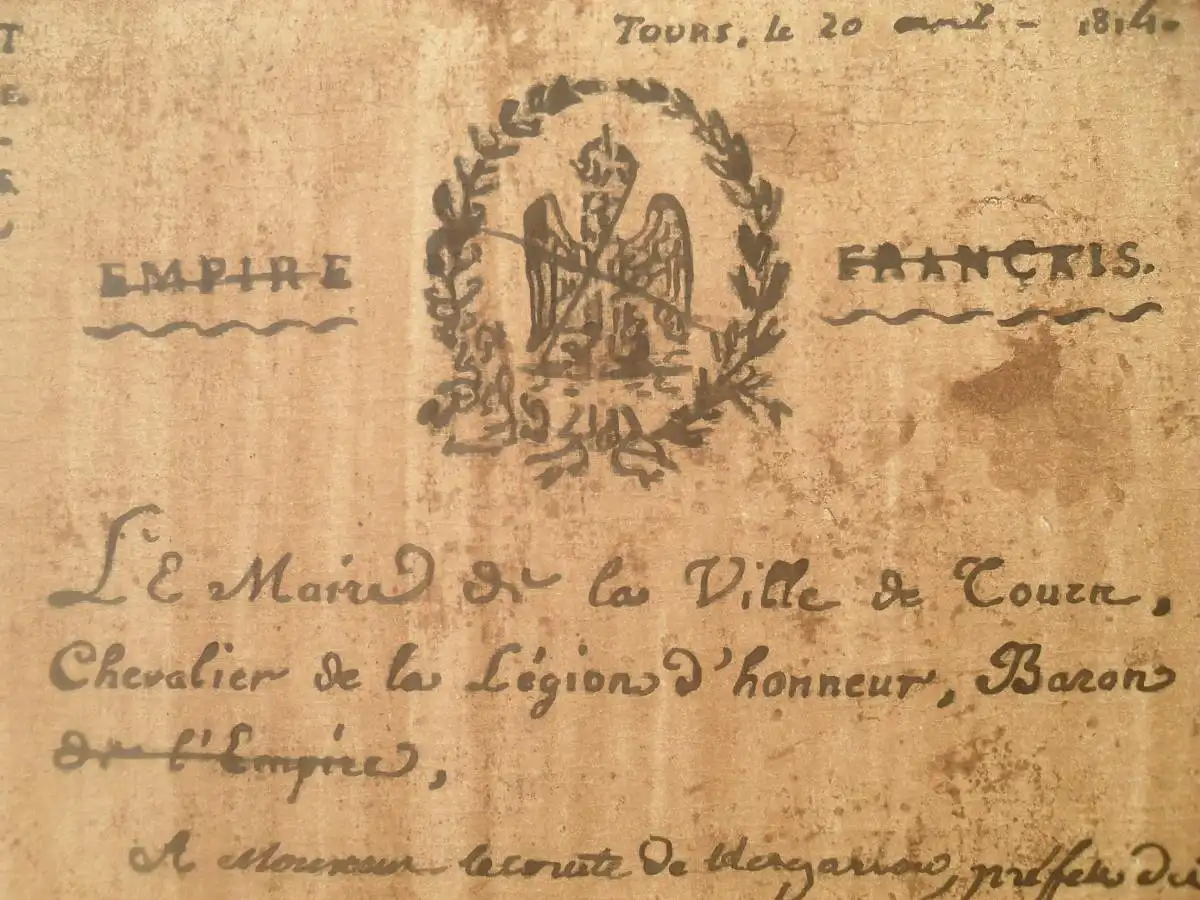 Tours, le 20 avril - 1814.
EMPIRE FRANÇAIS.
LE Maire de la Ville de Tours,
Chevalier de la Légion d'honneur, Baron
de l'Empire,
A Monsieur le comte de Kergariou, préfet du